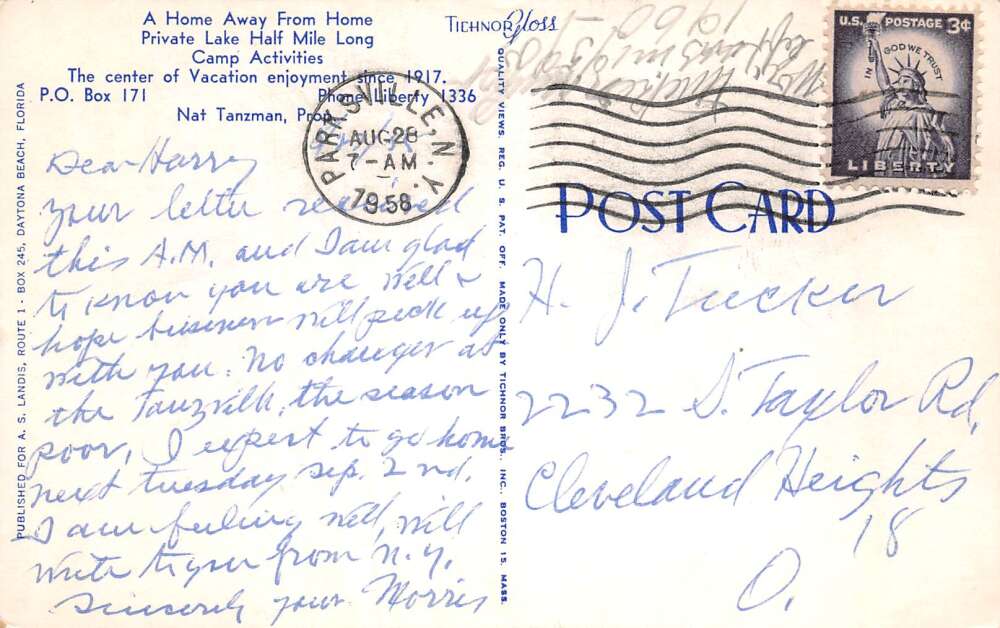 A Home Away From Home
Private Lake Half Mile Long
Camp Activities
The center of Vacation enjoyment since 1917.
P.O. Box 171 Phone Liberty 1336
Nat Tanzman, Prop.
TICHNOR Gloss
PARKSVILLE, N.Y.
AUG 28
7-AM
1958
U.S. POSTAGE 3¢
IN GOD WE TRUST
LIBERTY
POST CARD
Dear Harry
your letter received
this A.M. and I am glad
to know you are well &
hope business will pick up
with you. No changes at
the Tanzville, the season
poor, I expect to go home
next tuesday sep. 2nd.
I am feeling well, will
write to you from N.Y.
Sincerely your Morris
H. J. Tucker
2232 S. Taylor Rd,
Cleveland Heights
18
O.
PUBLISHED FOR A. S. LANDIS, ROUTE 1 - BOX 245, DAYTONA BEACH, FLORIDA
QUALITY VIEWS. REG. U. S. PAT. OFF. MADE ONLY BY TICHNOR BROS., INC., BOSTON 15, MASS.